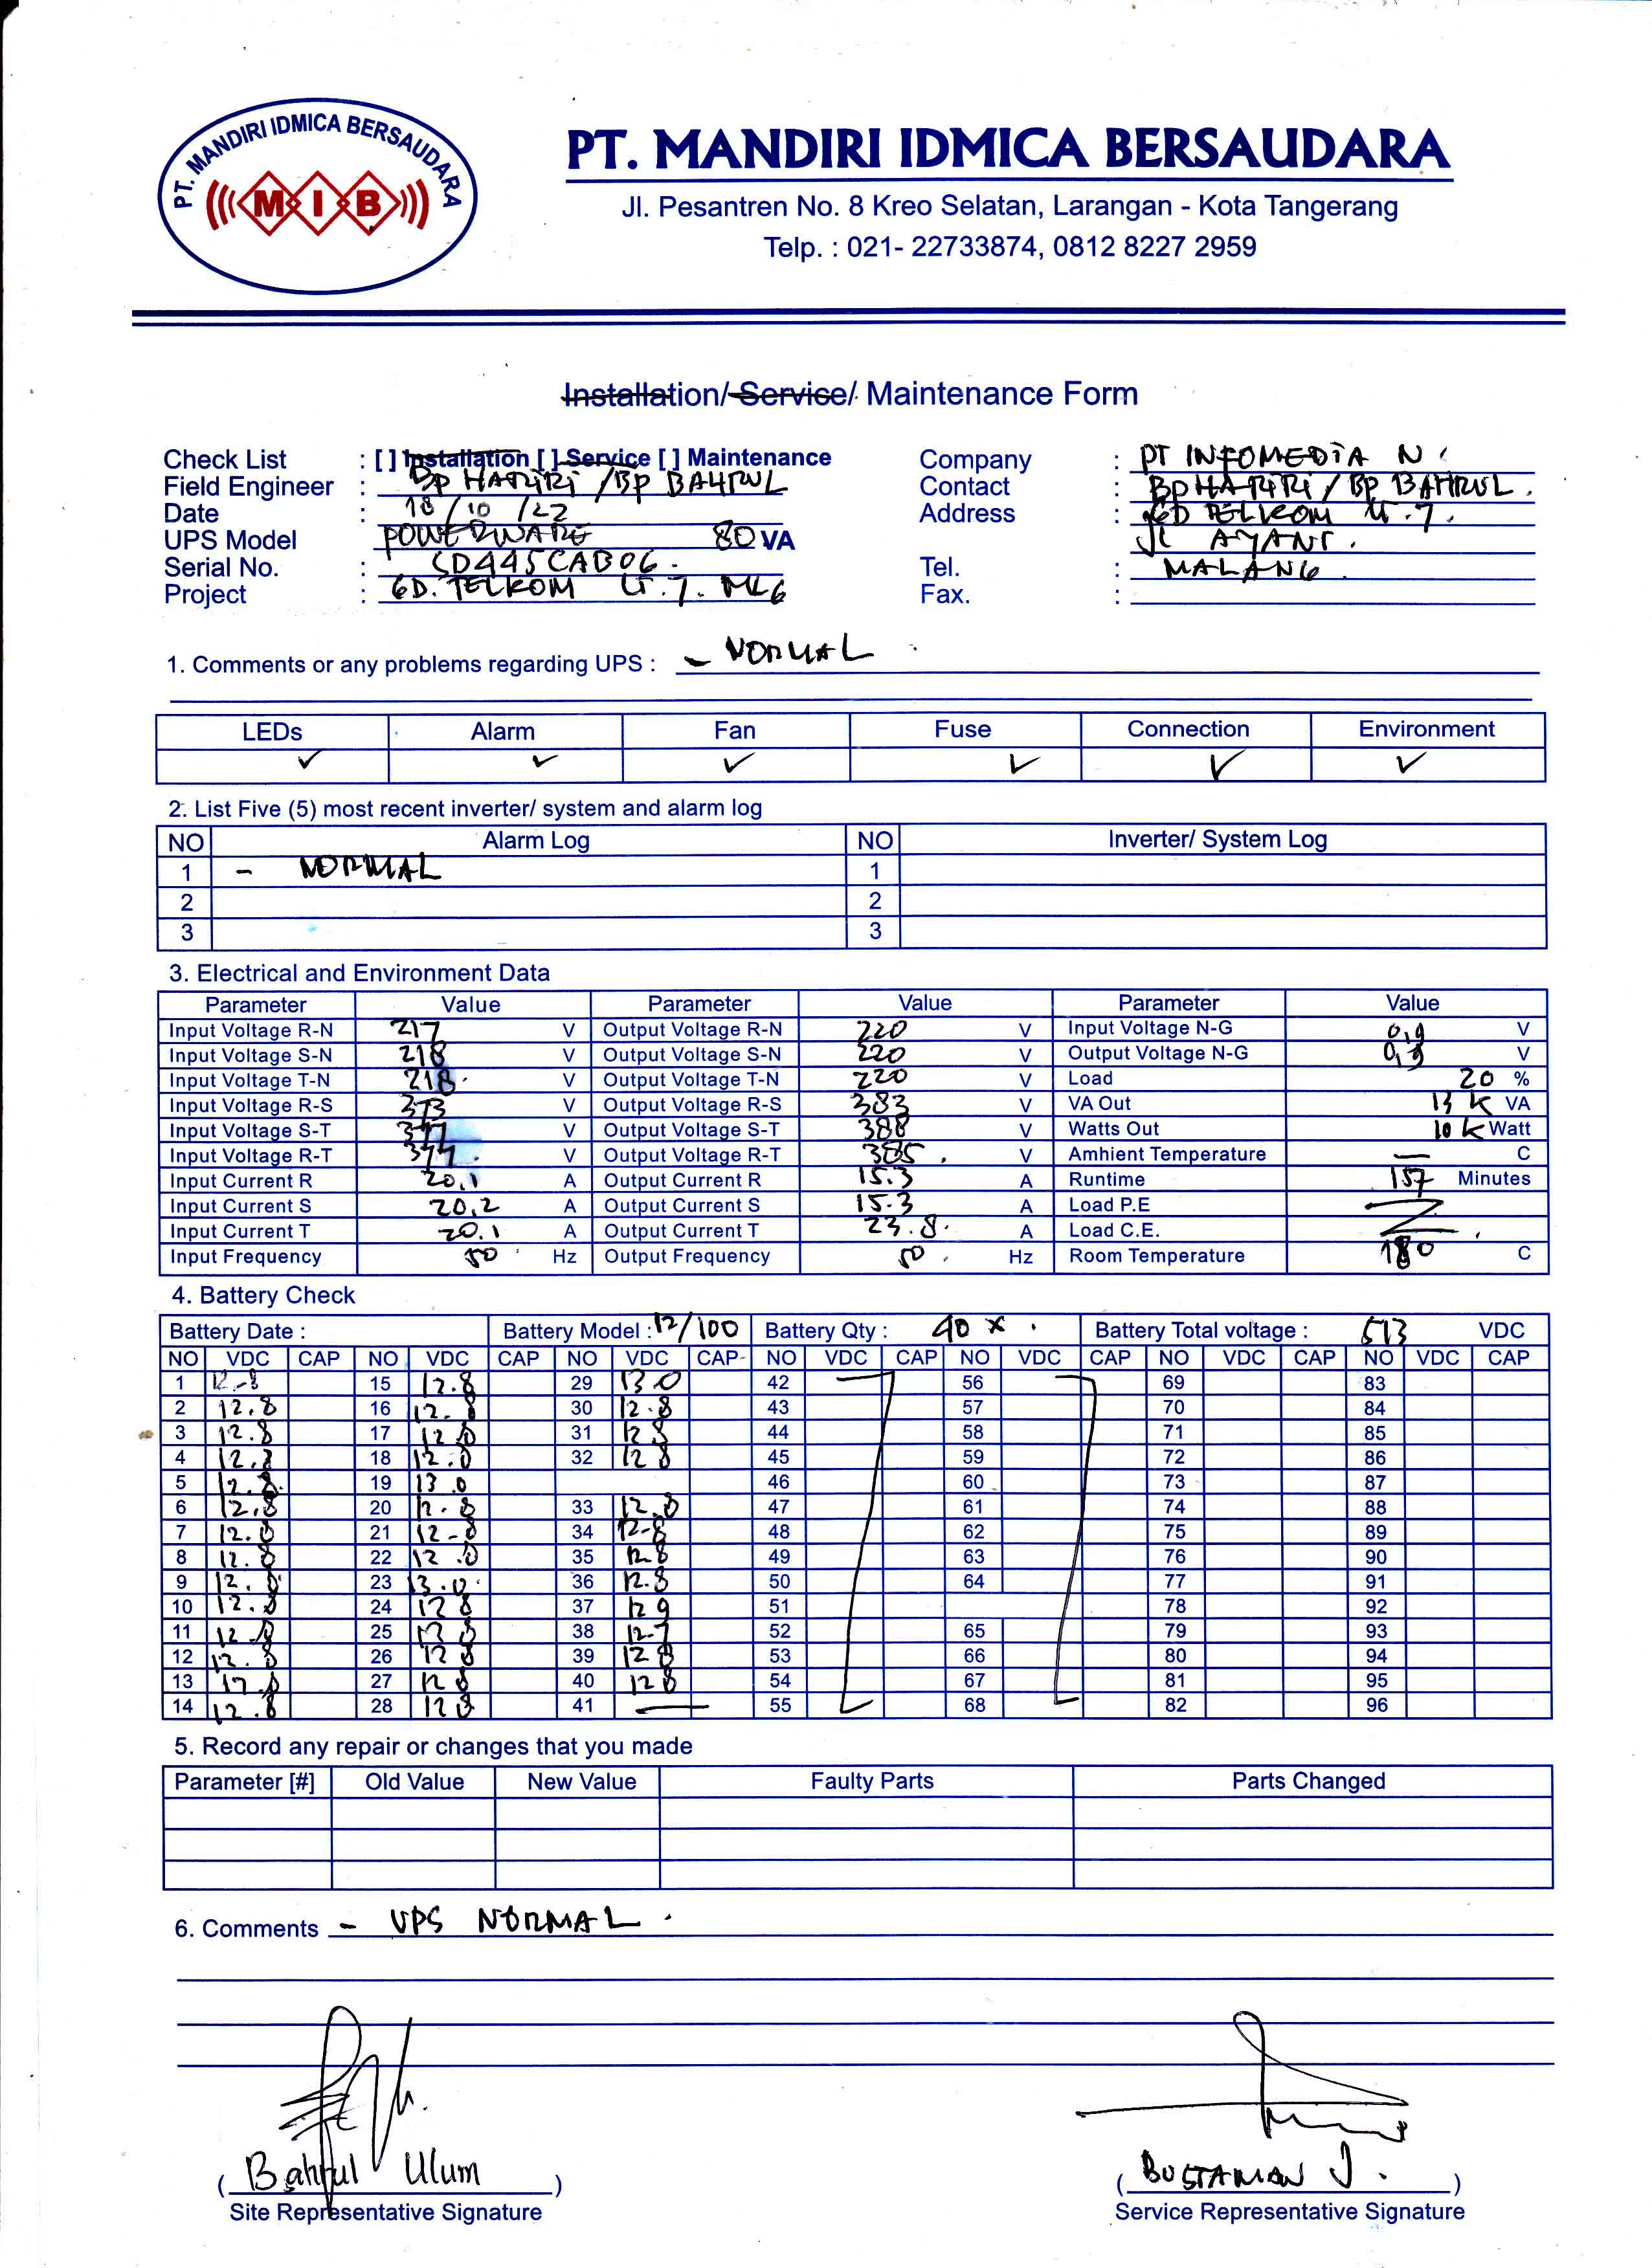 PT. MANDIRI IDMICA BERSAUDARA
M I B
PT. MANDIRI IDMICA BERSAUDARA
Jl. Pesantren No. 8 Kreo Selatan, Larangan - Kota Tangerang
Telp. : 021- 22733874, 0812 8227 2959
Installation/ Service/ Maintenance Form
Check List : [ ] Installation [ ] Service [ ] Maintenance Company : PT INFOMEDIA N
Field Engineer : BP HARIRI / BP BAHRUL Contact : BP HARIRI / BP BAHRUL.
Date : 18/10/22 Address : GD TELKOM LT.7.
UPS Model POWERWARE 80 VA Jl AYANI.
Serial No. : SD445CAB06. Tel. : MALANG
Project : GD. TELKOM LT.7. MLG Fax. :
1. Comments or any problems regarding UPS : - NORMAL
LEDs Alarm Fan Fuse Connection Environment
✓ ✓ ✓ ✓ ✓ ✓
2. List Five (5) most recent inverter/ system and alarm log
NO Alarm Log NO Inverter/ System Log
1 - NORMAL 1
2 2
3 3
3. Electrical and Environment Data
Parameter Value Parameter Value Parameter Value
Input Voltage R-N 217 V Output Voltage R-N 220 V Input Voltage N-G 0,9 V
Input Voltage S-N 218 V Output Voltage S-N 220 V Output Voltage N-G V
Input Voltage T-N 218. V Output Voltage T-N 220 V Load 20 %
Input Voltage R-S 373 V Output Voltage R-S 383 V VA Out 13 K VA
Input Voltage S-T 377 V Output Voltage S-T 388 V Watts Out 10 K Watt
Input Voltage R-T 377. V Output Voltage R-T 385. V Amhient Temperature — C
Input Current R 20,1 A Output Current R 15.3 A Runtime 157 Minutes
Input Current S 20,2 A Output Current S 15.3 A Load P.E
Input Current T 20.1 A Output Current T 23.8. A Load C.E.
Input Frequency 50 Hz Output Frequency 50. Hz Room Temperature C
4. Battery Check
Battery Date : Battery Model : 12/100 Battery Qty : 40 x. Battery Total voltage : 513 VDC
NO VDC CAP NO VDC CAP NO VDC CAP NO VDC CAP NO VDC CAP NO VDC CAP NO VDC CAP
1 12.8 15 12.8 29 13.0 42 56 69 83
2 12.8 16 12.8 30 12.8 43 57 70 84
3 12.8 17 12.8 31 12 8 44 58 71 85
4 12.8 18 12.8 32 12 8 45 59 72 86
5 12.8 19 13.0 46 60 73 87
6 12.8 20 12.8 33 12.8 47 61 74 88
7 12.8 21 12-8 34 12-8 48 62 75 89
8 12.8 22 12.8 35 12.8 49 63 76 90
9 12.8 23 13.0 36 12.8 50 64 77 91
10 12.8 24 12 8 37 12 9 51 78 92
11 12.8 25 12 8 38 12-7 52 65 79 93
12 12.8 26 12 8 39 12 8 53 66 80 94
13 12.8 27 12 8 40 12 8 54 67 81 95
14 12.8 28 12 8 41 — 55 68 82 96
5. Record any repair or changes that you made
Parameter [#] Old Value New Value Faulty Parts Parts Changed
6. Comments - UPS NORMAL.
( Bahrul Ulum ) ( BUSTAMAN J. )
Site Representative Signature Service Representative Signature